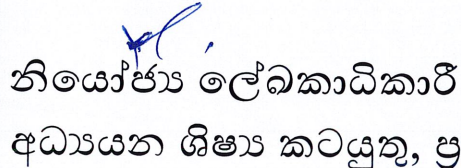 නියෝජ්‍ය ලේඛකාධිකාරී
අධ්‍යයන ශිෂ්‍ය කටයුතු, ප්‍ර